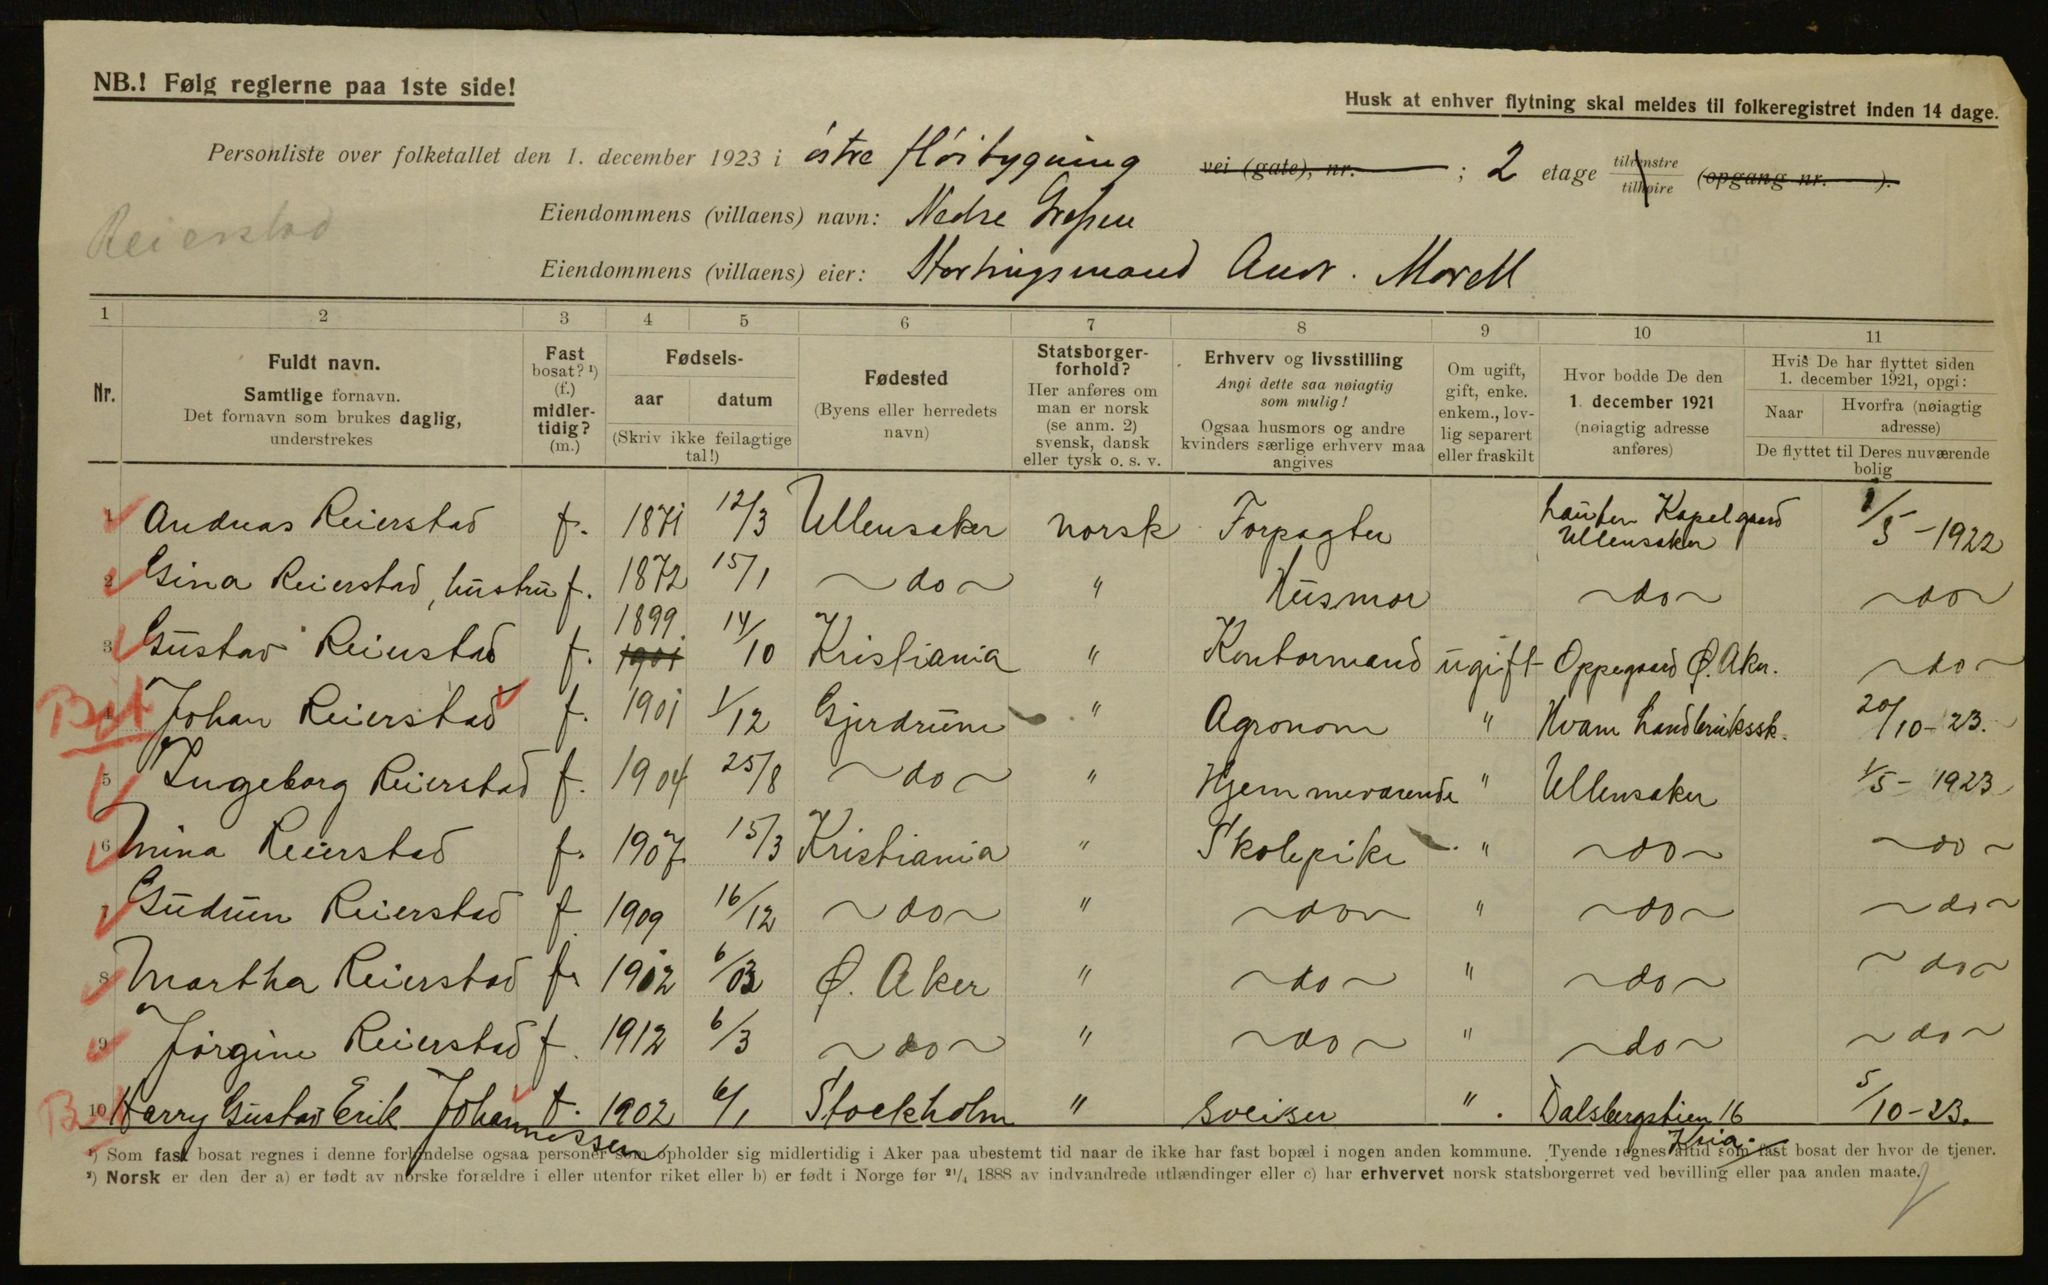 NB.! Følg reglerne paa 1ste side!
Husk at enhver flytning skal meldes til folkeregistret inden 14 dage.
Personliste over folketallet den 1. december 1923 i østre fløibygning vei (gate), nr. ; 2 etage tilvenstre tilhøire (opgang nr. ).
Reierstad
Eiendommens (villaens) navn: Nedre Grefsen
Eiendommens (villaens) eier: Stortingsmand Andr. Morell
1 2 3 4 5 6 7 8 9 10 11
Nr.
Fuldt navn.
Samtlige fornavn.
Det fornavn som brukes daglig,
understrekes
Fast
bosat? ¹)
(f.)
midler-
tidig?
(m.)
Fødsels-
aar datum
(Skriv ikke feilagtige
tal!)
Fødested
(Byens eller herredets
navn)
Statsborger-
forhold?
Her anføres om
man er norsk
(se anm. 2)
svensk, dansk
eller tysk o. s. v.
Erhverv og livsstilling
Angi dette saa nøiagtig
som mulig!
Ogsaa husmors og andre
kvinders særlige erhverv maa
angives
Om ugift,
gift, enke.
enkem., lov-
lig separert
eller fraskilt
Hvor bodde De den
1. december 1921
(nøiagtig adresse
anføres)
Hvis De har flyttet siden
1. december 1921, opgi:
Naar
Hvorfra (nøiagtig
adresse)
De flyttet til Deres nuværende
bolig
1 Andreas Reierstad f. 1871 12/3 Ullensaker norsk Forpagter Kapelgaard Ullensaker 1/5 - 1922
2 Gina Reierstad, hustru f. 1872 15/1 ~do~ " Husmor ~do~ ~do~
3 Gustav Reierstad f. 1899 1901 14/10 Kristiania " Kontormand ugift Oppegaard Ø. Aker. ~do~
4 Johan Reierstad f. 1901 1/12 Gjerdrum " Agronom " Hvam Landbrukssk. 20/10-23.
5 Ingeborg Reierstad f. 1904 25/8 ~do~ " Hjemmeværende " Ullensaker 1/5 - 1923
6 Mina Reierstad f. 1907 15/3 Kristiania " Skolepike " ~do~ ~do~
7 Gudrun Reierstad f. 1909 16/12 ~do~ " ~do~ " ~do~ ~do~
8 Martha Reierstad f. 1912 6/3 Ø. Aker " ~do~ " ~do~ ~do~
9 Jørgine Reierstad f. 1912 6/3 ~do~ " ~do~ " ~do~ ~do~
10 Harry Gustav Erik Johannessen f. 1902 6/1 Stockholm " sveiser " Dalsbergstien 16 Kria. 5/10-23.
¹) Som fast bosat regnes i denne forbindelse ogsaa personer som opholder sig midlertidig i Aker paa ubestemt tid naar de ikke har fast bopæl i nogen anden kommune. Tyende regnes altid som fast bosat der hvor de tjener.
²) Norsk er den der a) er født av norske forældre i eller utenfor riket eller b) er født i Norge før 21/4 1888 av indvandrede utlændinger eller c) har erhvervet norsk statsborgerret ved bevilling eller paa anden maate.